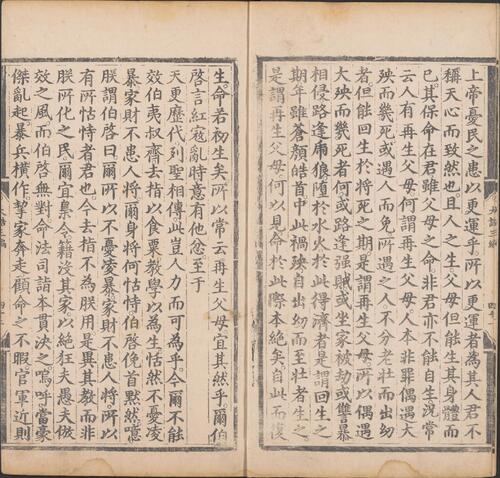 上帝憂民之患以更運乎所以更運者為其人君不
稱天心而致然也且人之生父母但能生其身體而
已其保命在君雖父母之命非君亦不能自生況常
云人有再生父母何謂再生父母人本非罪偶遇大
殃而幾死或遇人而免所遇之人不分老壯而出幼
者但能回生於將死之期是謂再生父母所以偶遇
大殃而幾死者何或路逢強賊或坐家被劫或讐暴
相侵路逢扁狼隨於水火於此得濟者是謂回生之
期年雖蒼顏皓首中此禍殃自出幼而至壯者生之
是謂再生父母何以見命於此際本絶矣自此而復
生命若初生矣所以常云再生父母宜其然乎爾伯
啓言紅寇亂時意有他忿至于
天更歷代列聖相傳此豈人力而可為乎今爾不能
效伯夷叔齊去指以食粟教學以為生恬然不憂凌
暴家財不患人將爾身將何怙恃伯啓俛首默然噫
朕謂伯啓曰爾所以不憂凌暴家財不患人將所以
有所怙恃者君也今去指不為朕用是異其教而非
朕所化之民爾宜梟令籍沒其家以絶狂夫愚夫倣
效之風而伯啓無對命法司詣本貫決之嗚呼當豪
傑亂起暴兵橫作挈家奔走顧命之不暇官軍近則